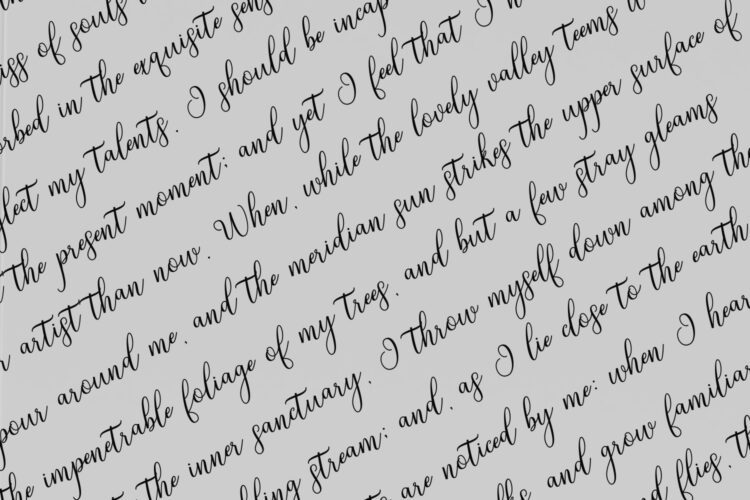 iss of souls
orbed in the exquisite sens
glect my talents. I should be incap
t the present moment; and yet I feel that I n
r artist than now. When, while the lovely valley teems w
pour around me, and the meridian sun strikes the upper surface of
the impenetrable foliage of my trees, and but a few stray gleams
the inner sanctuary, I throw myself down among the
ling stream; and, as I lie close to the earth
are noticed by me: when I hear
and grow familiar
d flies, th